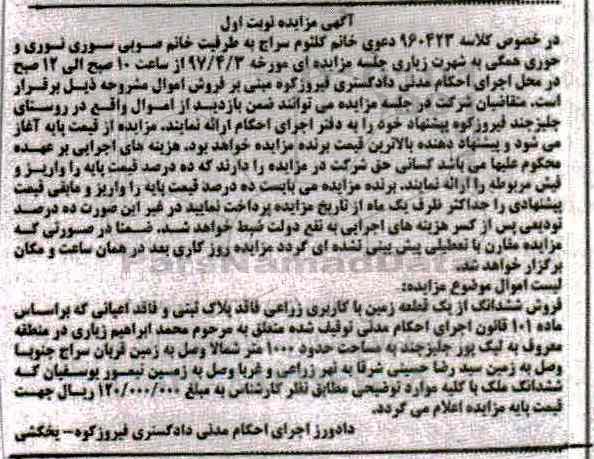 آگهی مزایده نوبت اول
در خصوص کلاسه ۹۶۰۴۲۳ دعوی خانم کلثوم سراج به طرفیت خانم صوبی سوری نوری و
حوری همگی به شهرت زیاری جلسه مزایده ای مورخه ۹۷/۴/۳ از ساعت ۱۰ صبح الی ۱۲ صبح
در محل اجرای احکام مدنی دادگستری فیروزکوه مبنی بر فروش اموال مشروحه ذیل برقرار
است. متقاضیان شرکت در جلسه مزایده می توانند ضمن بازدید از اموال واقع در روستای
جلیزجند فیروزکوه پیشنهاد خود را به دفتر اجرای احکام ارائه نمایند. مزایده از قیمت پایه آغاز
می شود و پیشنهاد دهنده بالاترین قیمت برنده مزایده خواهد بود. هزینه های اجرایی بر عهده
محکوم علیها می باشد کسانی حق شرکت در مزایده را دارند که ده درصد قیمت پایه را واریز و
فیش مربوطه را ارائه نمایند. برنده مزایده می بایست ده درصد قیمت پایه را واریز و مابقی قیمت
پیشنهادی را حداکثر ظرف یک ماه از تاریخ مزایده پرداخت نمایید در غیر این صورت ده درصد
تودیعی پس از کسر هزینه های اجرایی به نفع دولت ضبط خواهد شد. ضمنا در صورتی که
مزایده مقارن با تعطیلی پیش بینی نشده ای گردد مزایده روز کاری بعد در همان ساعت و مکان
برگزار خواهد شد.
لیست اموال موضوع مزایده:
فروش ششدانگ از یک قطعه زمین با کاربری زراعی فاقد پلاک ثبتی و فاقد اعیانی که براساس
ماده ۱۰۱ قانون اجرای احکام مدنی توقیف شده متعلق به مرحوم محمد ابراهیم زیاری در منطقه
معروف به لیک پور جلیزجند به مساحت حدود ۱۰۰۰ متر شمالا وصل به زمین قربان سراج جنوبا
وصل به زمین سید رضا حسینی شرقا به نهر زراعی و غربا وصل به زمین تیمور یوسفیان که
ششدانگ ملک با کلیه موارد توضیحی مطابق نظر کارشناس به مبلغ ۱۲۰/۰۰۰/۰۰۰ ریال جهت
قیمت پایه مزایده اعلام می گردد.
دادورز اجرای احکام مدنی دادگستری فیروزکوه- یخکشی